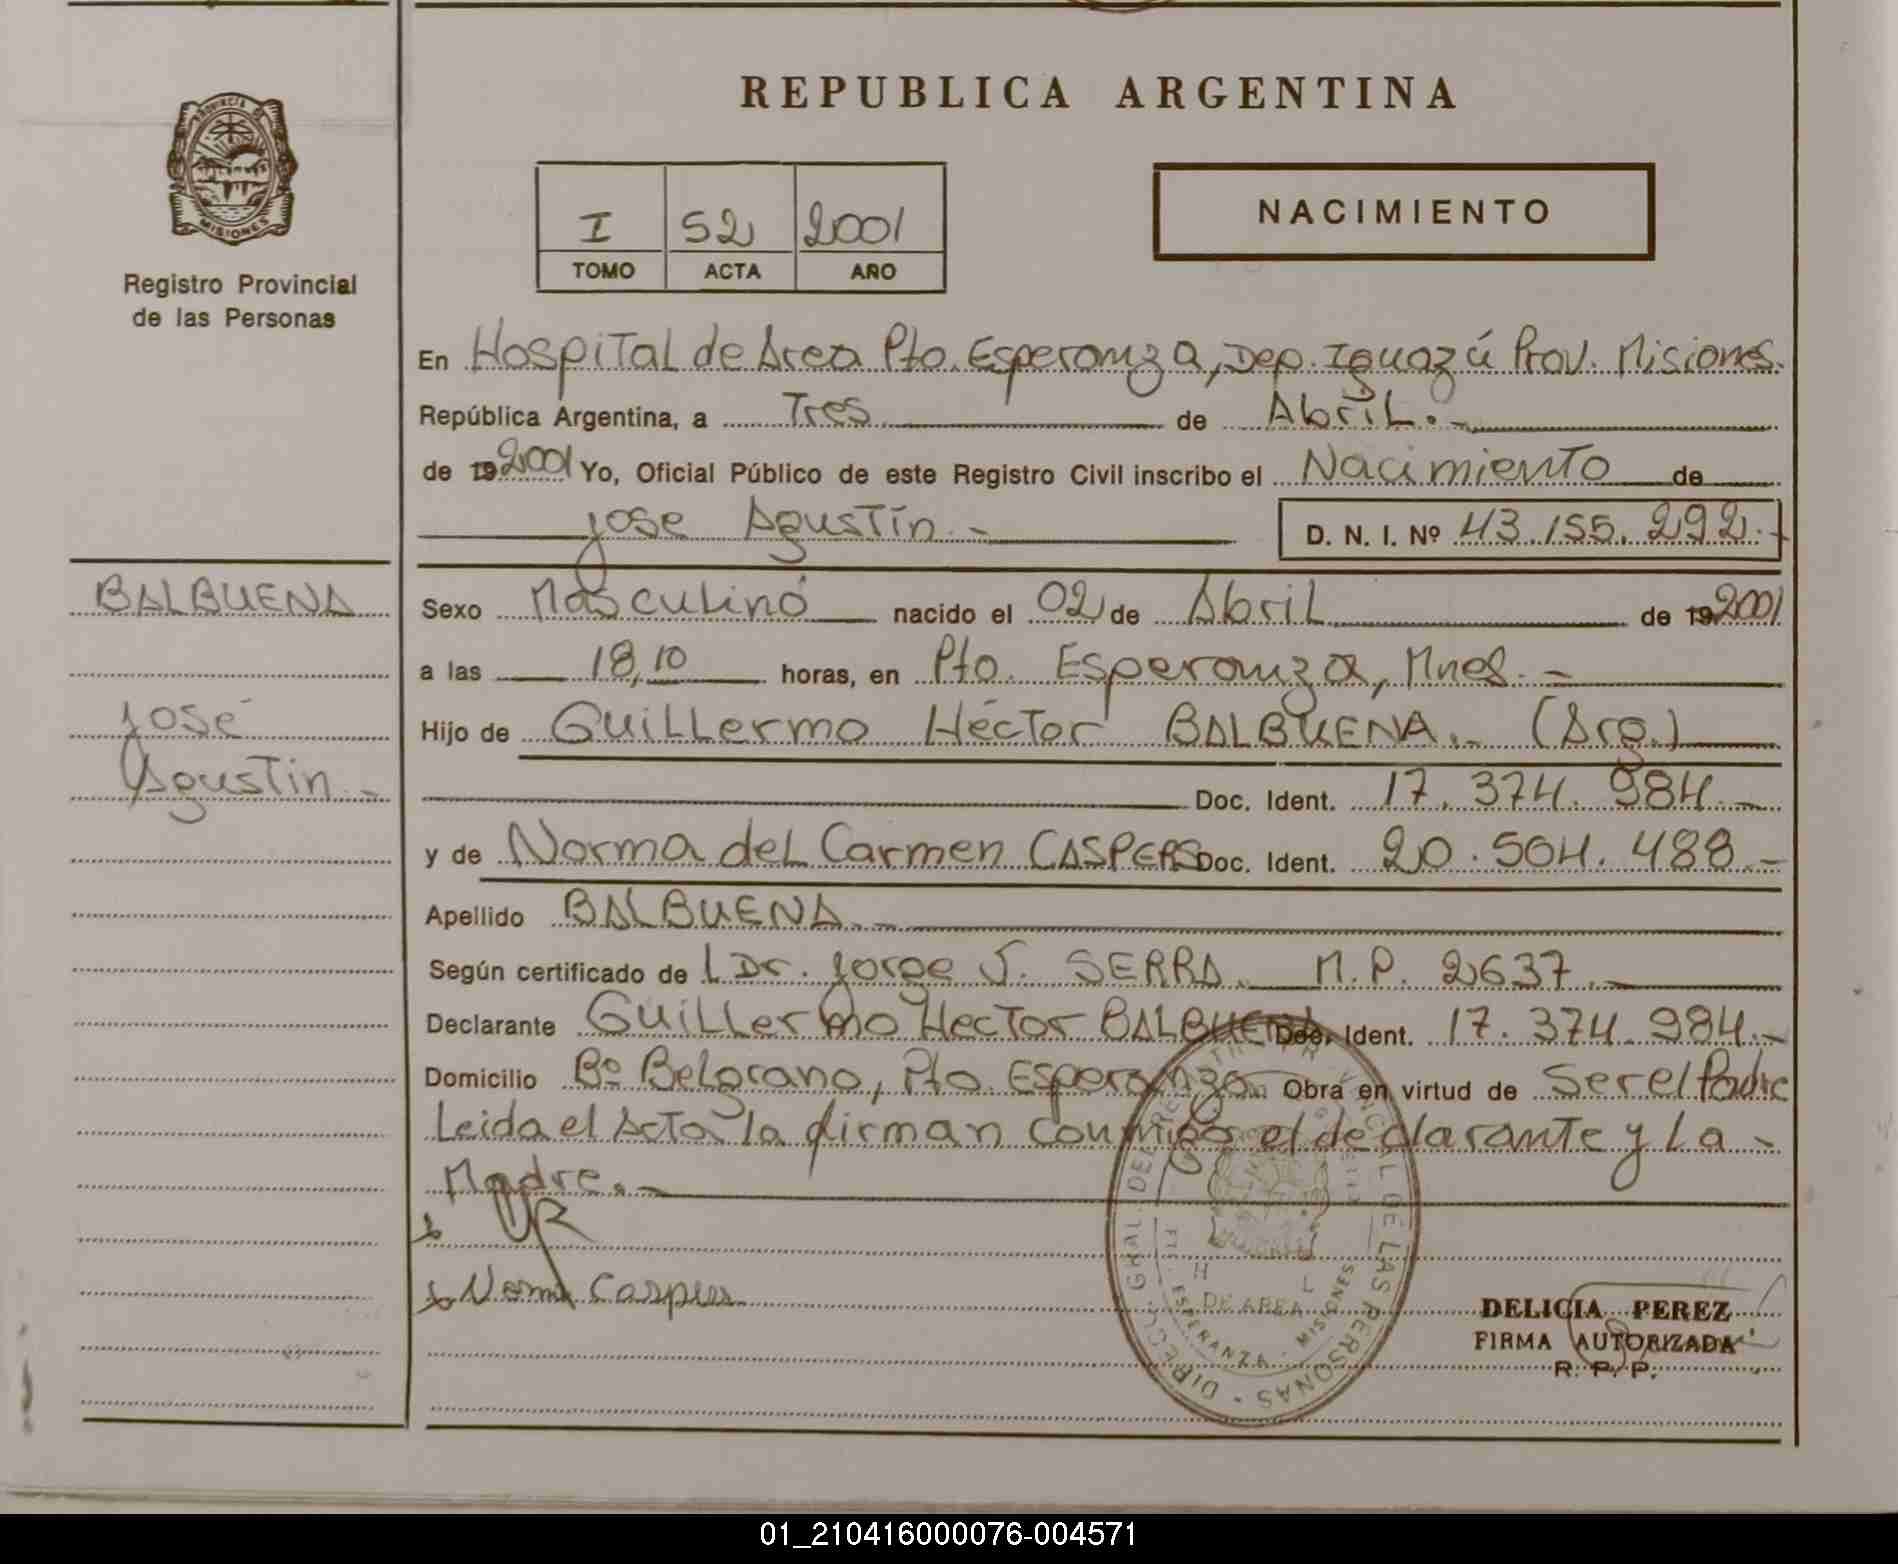 REPUBLICA ARGENTINA
PROVINCIA DE
MISIONES
Registro Provincial
de las Personas
I 52 2001
TOMO ACTA AÑO
NACIMIENTO
En Hospital de Area Pto. Esperanza, Dep. Iguazú Prov. Misiones.
República Argentina, a Tres de Abril.-
de 19 2001 Yo, Oficial Público de este Registro Civil inscribo el Nacimiento de
Jose Agustín.- D. N. I. Nº 43.155.292.-
BALBUENA
José
Agustín.-
Sexo Masculino nacido el 02 de Abril de 19 2001
a las 18,10 horas, en Pto. Esperanza, Mnes.-
Hijo de Guillermo Héctor BALBUENA.- (Arg.)
Doc. Ident. 17.374.984.-
y de Norma del Carmen CASPERS Doc. Ident. 20.504.488.-
Apellido BALBUENA.-
Según certificado de l Dr. Jorge J. SERRA. M.P. 2637.-
Declarante Guillermo Hector BALBUENA Doc. Ident. 17.374.984.-
Domicilio Bº Belgrano, Pto. Esperanza. Obra en virtud de Ser el Padre
Leida el Acta la firman conmigo el declarante y La -
Madre.-
Norma Caspers
DIRECC. GRAL. DEL REGISTRO PROVINCIAL DE LAS PERSONAS
DE AREA
ESPERANZA - MISIONES
DELICIA PEREZ
FIRMA AUTORIZADA
R. P. P.
01_210416000076-004571